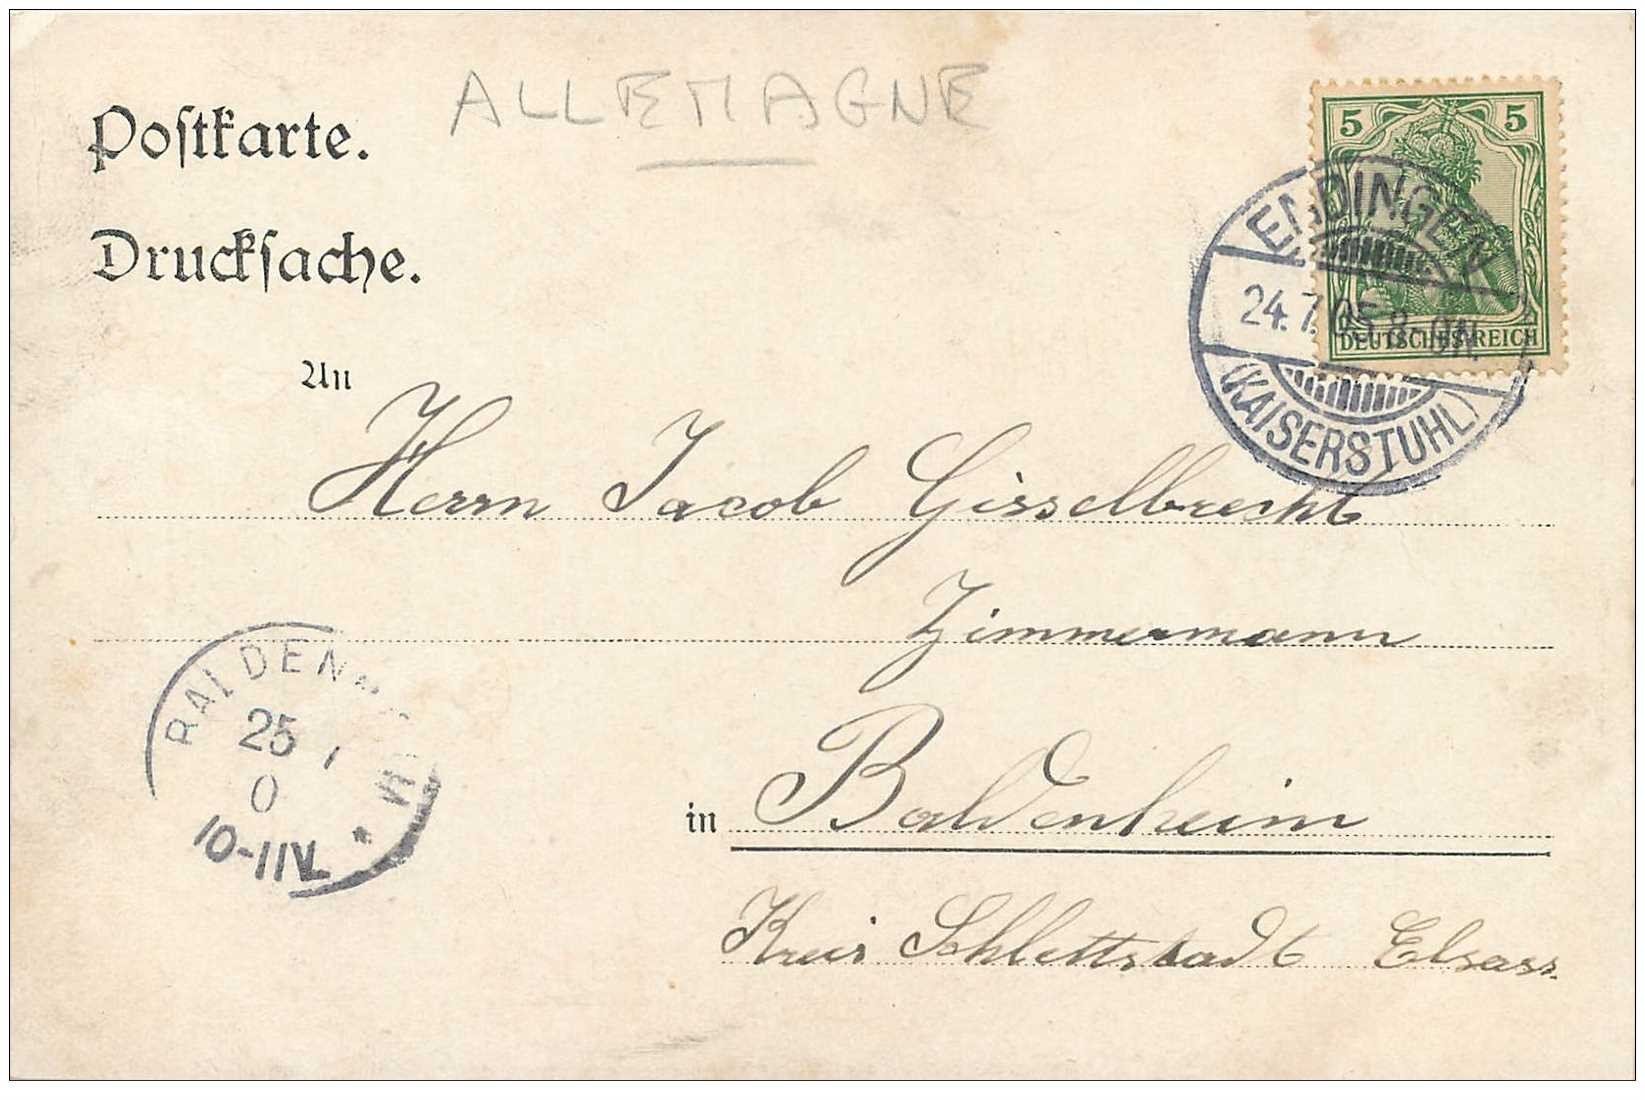 ALLEMAGNE
Postkarte.
Drucksache.
5 5
DEUTSCHES REICH
ENDINGEN
24.7.05 8-9N.
(KAISERSTUHL)
An
Herrn Jacob Gisselbrecht
Zimmermann
in Baldenheim
Kreis Schlettstadt Elsass.
BALDENHEIM
25
10-11V.